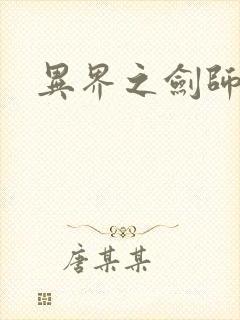 異界之劍師
唐某某